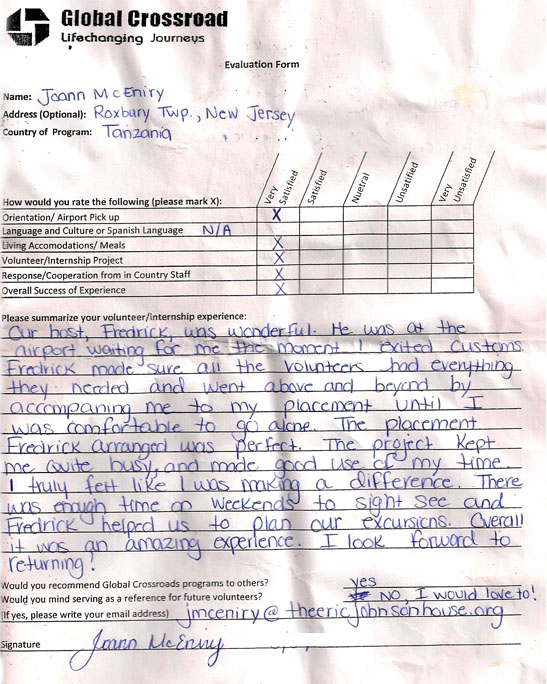 Global Crossroad
Lifechanging Journeys
Evaluation Form
Name: Joann McEniry
Address (Optional): Roxbury Twp., New Jersey
Country of Program: Tanzania
How would you rate the following (please mark X): Very Satisfied Satisfied Nuetral Unsatified Very Unsatisfied
Orientation/ Airport Pick up X
Language and Culture or Spanish Language N/A
Living Accomodations/ Meals X
Volunteer/Internship Project X
Response/Cooperation from in Country Staff X
Overall Success of Experience X
Please summarize your volunteer/internship experience:
Our host, Fredrick, was wonderful. He was at the
airport waiting for me the moment I exited customs.
Fredrick made sure all the volunteers had everything
they needed and went above and beyond by
accompaning me to my placement until I
was comfortable to go alone. The placement
Fredrick arranged was perfect. The project kept
me quite busy, and made good use of my time.
I truly felt like I was making a difference. There
was enough time on weekends to sight see and
Fredrick helped us to plan our excursions. Overall
it was an amazing experience. I look forward to
returning!
Would you recommend Global Crossroads programs to others? yes
Would you mind serving as a reference for future volunteers? NO, I would love to!
(If yes, please write your email address) jmceniry@theericjohnsonhouse.org
Signature Joann McEniry